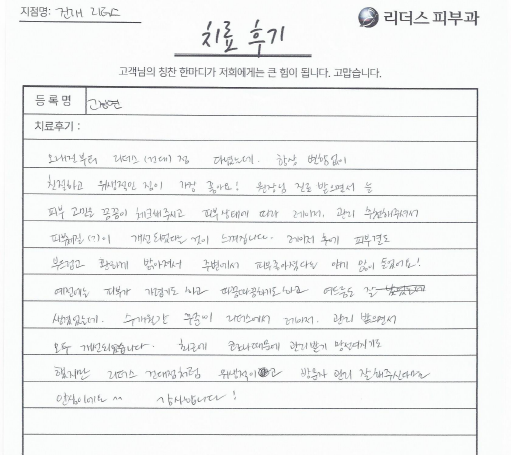 지점명: 건대 리더스
리더스 피부과
치료 후기
고객님의 칭찬 한마디가 저희에게는 큰 힘이 됩니다. 고맙습니다.
등 록 명
치료후기 :
오래전부터 리더스 (건대)점 다녔는데. 항상 변함없이
친절하고 위생적인 점이 가장 좋아요! 원장님 진료 받으면서 늘
피부 고민을 꼼꼼이 체크해주시고 피부상태에 따라 레이저, 관리 추천해주셔서
개선되었다는 것이 느껴집니다. 레이저 후에 피부결도
부드럽고 환하게 밝아져서 주변에서 피부좋아졌다는 얘기 많이 들었어요!
예전에는 피부가 가렵기도 하고 따끔따끔하기도 하고 여드름도 잘
생겼었는데. 수개월간 꾸준히 리더스에서 레이저, 관리 받으면서
모두 개선되었습니다. 최근에 코로나때문에 관리받기 망설여지기도
했지만 리더스 건대점처럼 위생적이고 방문자 관리 잘해주신다면
안심이에요 ^^ 감사합니다!